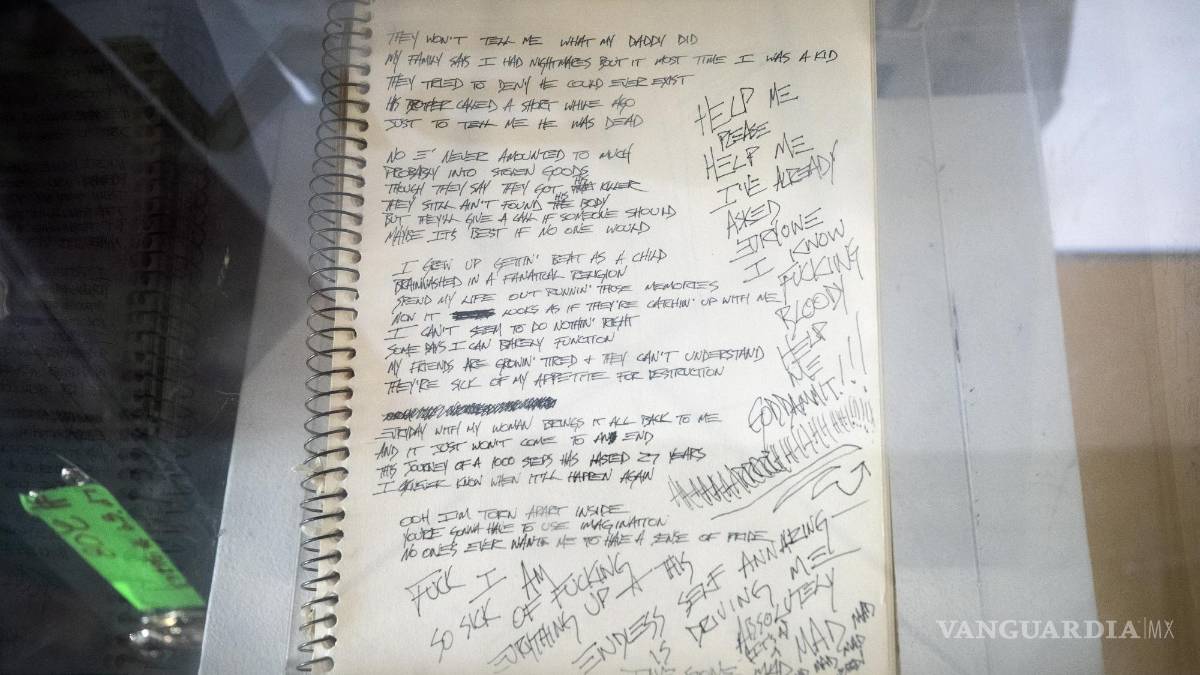 THEY WON'T TELL ME WHAT MY DADDY DID
MY FAMILY SAYS I HAD NIGHTMARES BUT IT MOST TIME I WAS A KID
THEY TRIED TO DENY HE COULD EVER EXIST
HIS BROTHER CALLED A SHORT WHILE AGO
JUST TO TELL ME HE WAS DEAD
NO E' NEVER AMOUNTED TO MUCH
PROBABLY INTO STOLEN GOODS
THOUGH THEY SAY THEY GOT HIS KILLER
THEY STILL AIN'T FOUND THE HIS BODY
BUT THEY'LL GIVE A CALL IF SOMEONE SHOULD
MAYBE ITS BEST IF NO ONE WOULD
I GREW UP GETTIN' BEAT AS A CHILD
BRAINWASHED IN A FANATICAL RELIGION
SPEND MY LIFE OUT RUNNIN' THOSE MEMORIES
NOW IT LOOKS AS IF THEY'RE CATCHIN' UP WITH ME
I CAN'T SEEM TO DO NOTHIN' RIGHT
SOME DAYS I CAN BARELY FUNCTION
MY FRIENDS ARE GROWIN' TIRED + THEY CAN'T UNDERSTAND
THEY'RE SICK OF MY APPETITE FOR DESTRUCTION
EVRYDAY WITH MY WOMAN BRINGS IT ALL BACK TO ME
AND IT JUST WON'T COME TO AN END
THIS JOURNEY OF A 1000 STEPS HAS LASTED 27 YEARS
I NEVER KNOW WHEN IT'LL HAPPEN AGAIN
OOH I'M TORN APART INSIDE
YOU'RE GONNA HAVE TO USE IMAGINATION
NO ONES EVER WANTED ME TO HAVE A SENSE OF PRIDE
HELP ME
PLEASE
HELP ME
I'VE ALREADY
ASKED
EVRYONE
I KNOW
FUCKING
BLOODY
HELP
ME
GODDAMNIT!!!
FUCK I AM
SO SICK OF FUCKING
EVRYTHING UP
THIS
ENDLESS SELF ANNALYZING
IS DRIVING ME!
ABSOLUTELY
MAD MAD
VANGUARDIA|MX